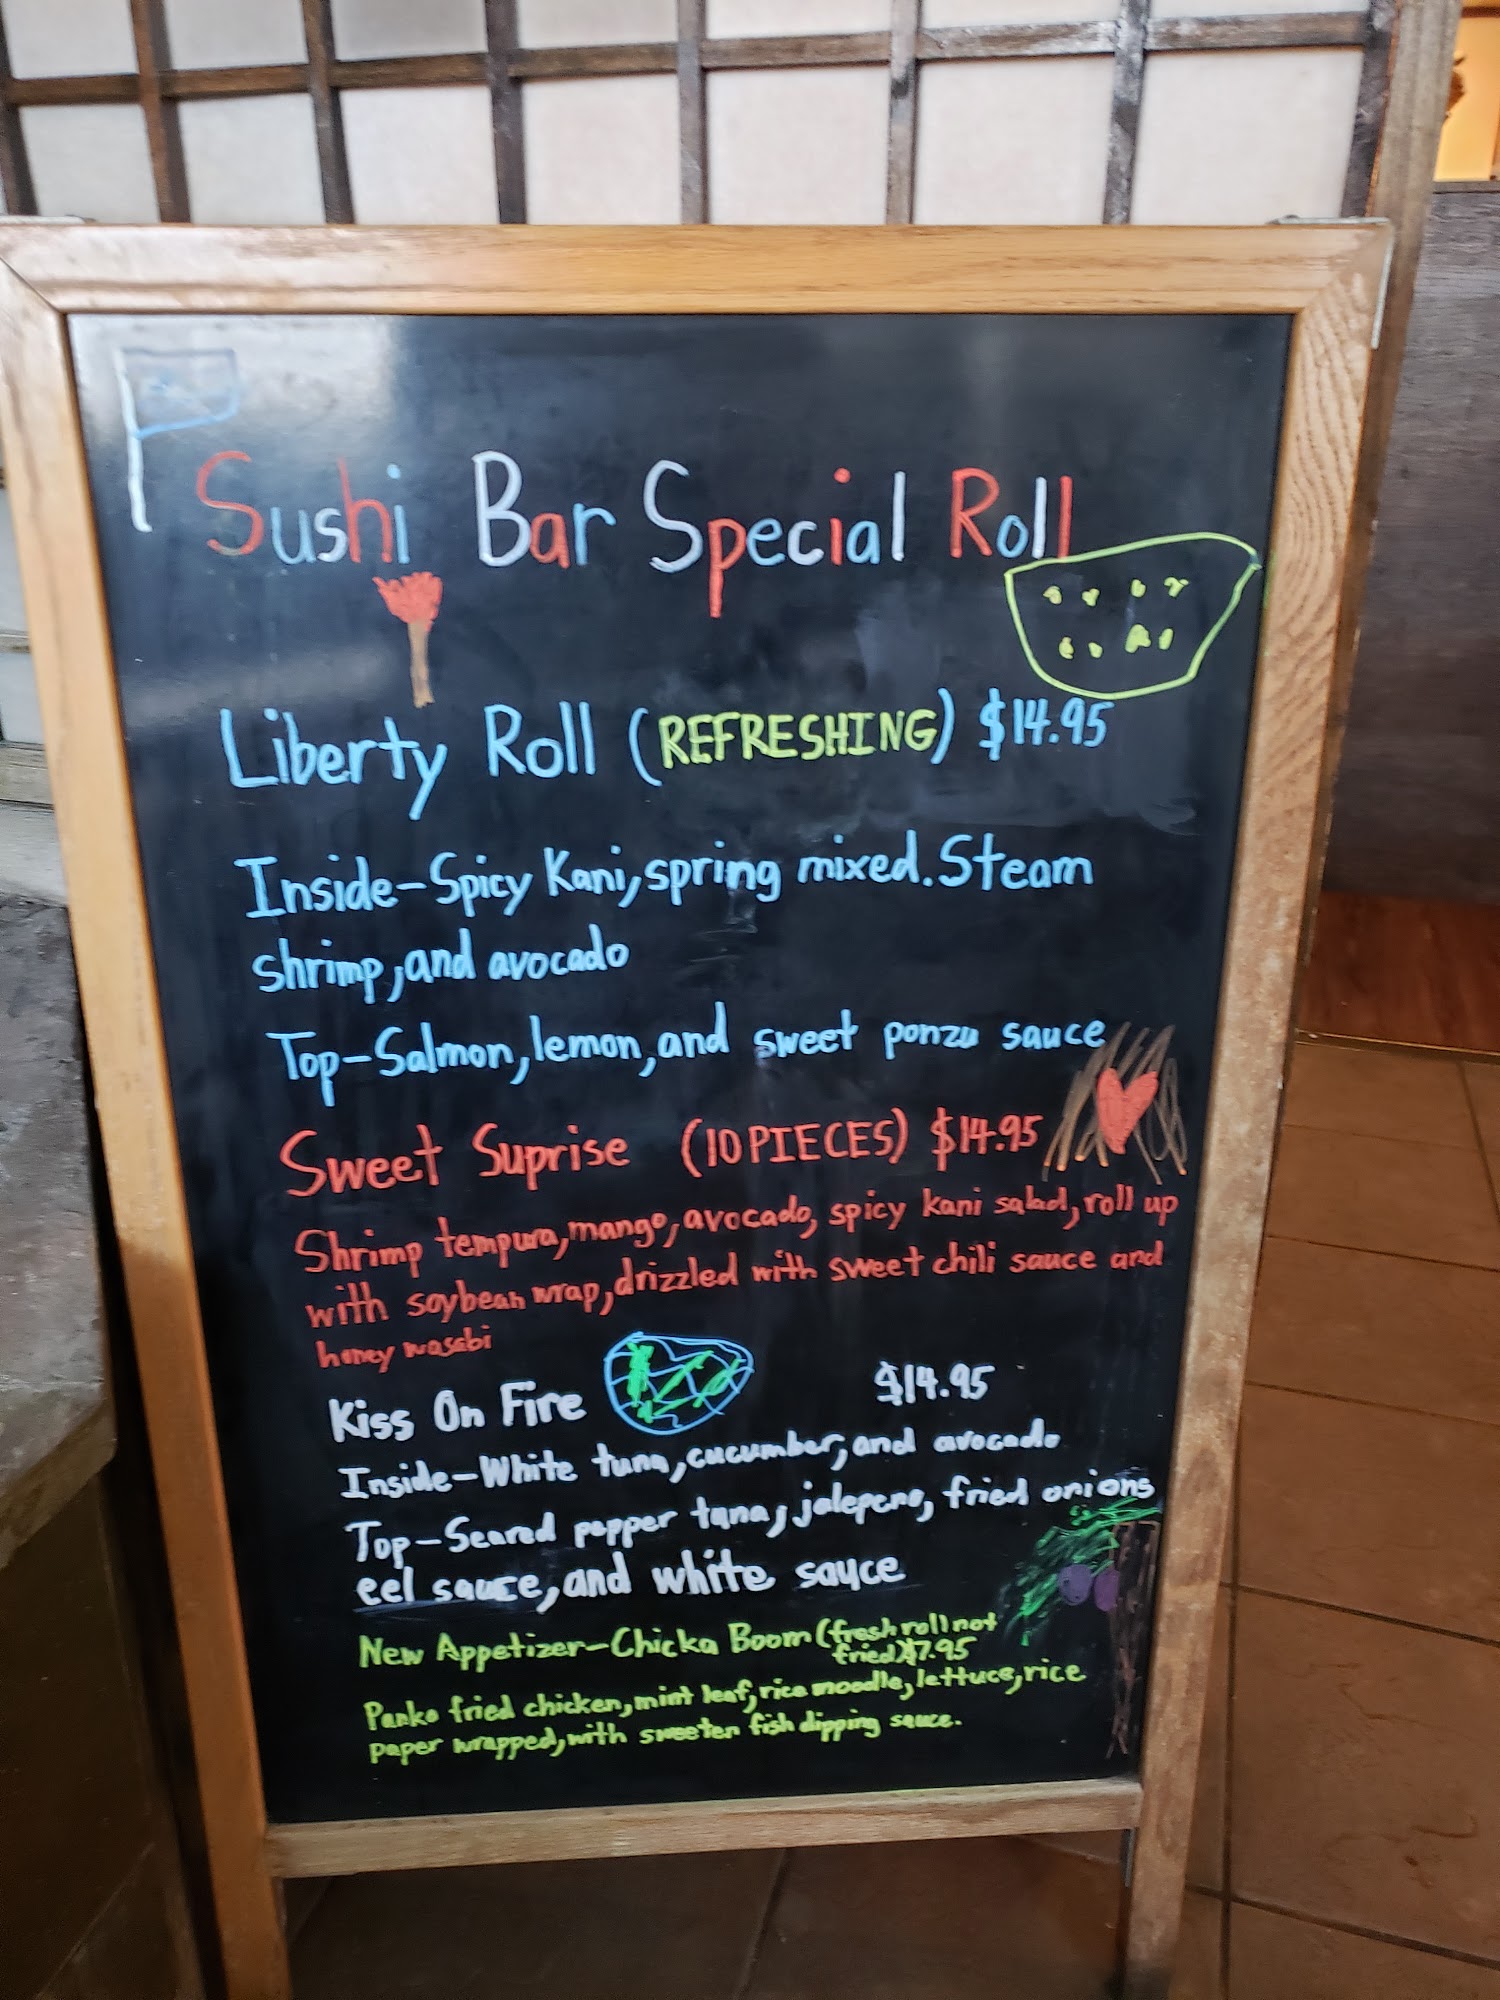 Sushi Bar Special Roll
Liberty Roll (REFRESHING) $14.95
Inside-Spicy Kani, spring mixed. Steam
shrimp, and avocado
Top-Salmon, lemon, and sweet ponzu sauce
Sweet Suprise (10 PIECES) $14.95
Shrimp tempura, mango, avocado, spicy kani salad, roll up
with soybean wrap, drizzled with sweet chili sauce and
honey wasabi
Kiss On Fire $14.95
Inside-White tuna, cucumber, and avocado
Top-Seared pepper tuna, jalepeno, fried onions
eel sauce, and white sauce
New Appetizer-Chicka Boom (fresh roll not
fried) $7.95
Panko fried chicken, mint leaf, rice noodle, lettuce, rice
paper wrapped, with sweeten fish dipping sauce.